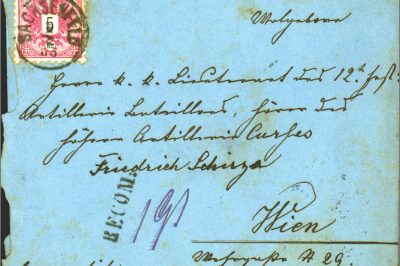 5
SACHSENFELD
Wolgeboren
Herrn k. k. Lieutenant des 12t. Fest:
Artillerie Bataillons, Hörer des
höhern Artillerie Curses
Friedrich Schirza
RECOM.
191
Wien
Wehrgasse # 29